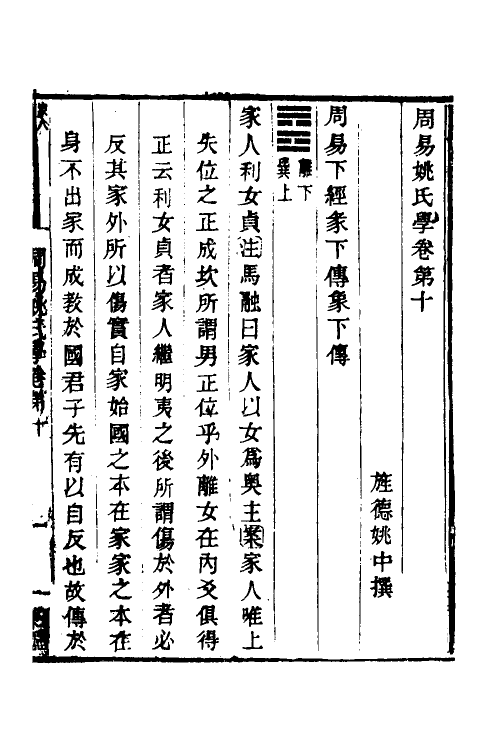 周易姚氏學卷第十
旌德姚中撰
周易下經彖下傳象下傳
離下
巽上
家人利女貞注馬融曰家人以女爲奧主案家人唯上
失位之正成坎所謂男正位乎外離女在內爻俱得
正云利女貞者家人繼明夷之後所謂傷於外者必
反其家外所以傷實自家始國之本在家家之本在
身不出家而成教於國君子先有以自反也故傳於
周易姚氏學卷第十
一